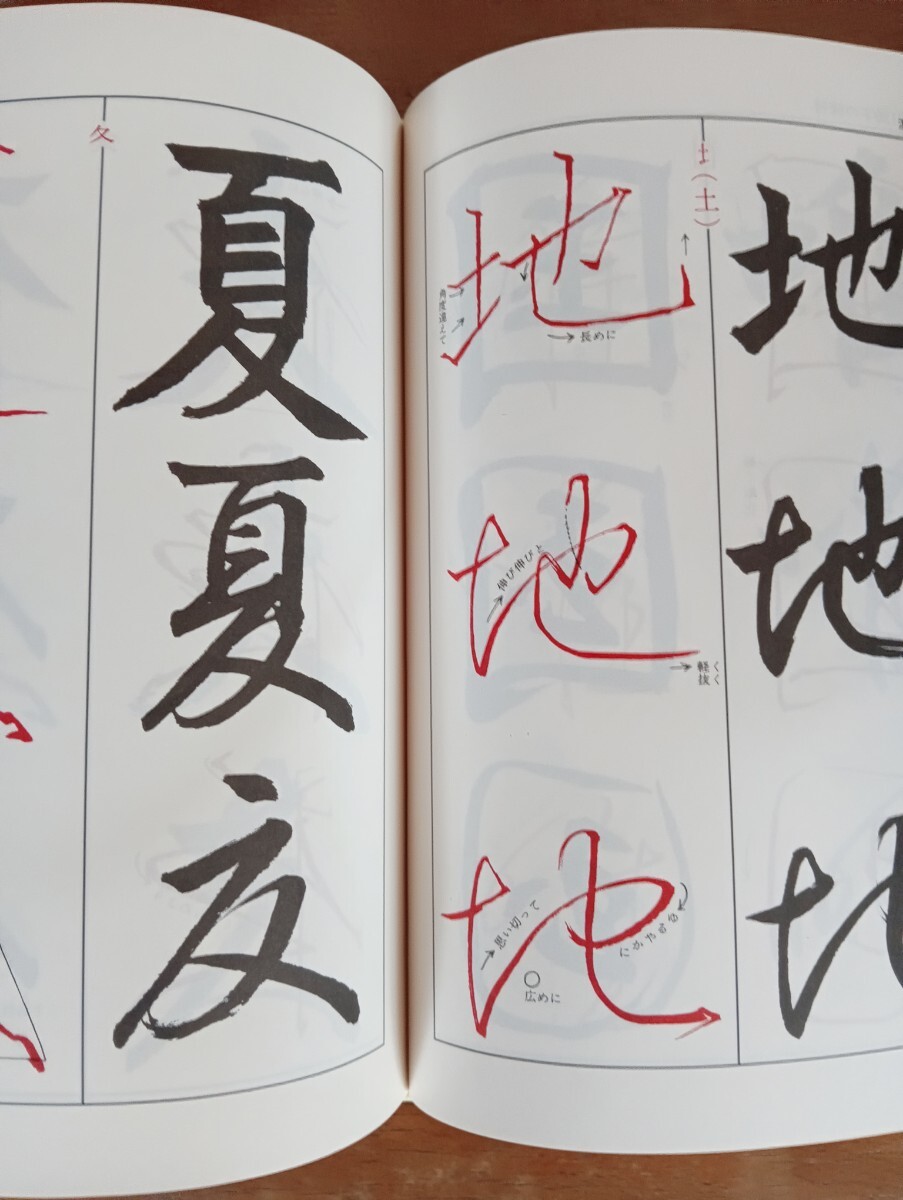 地
地
地
土(土)
地
角度違えて
長めに
地
伸び伸びと
軽く抜く
地
思い切って
広めに
夂
夏
夏
夏